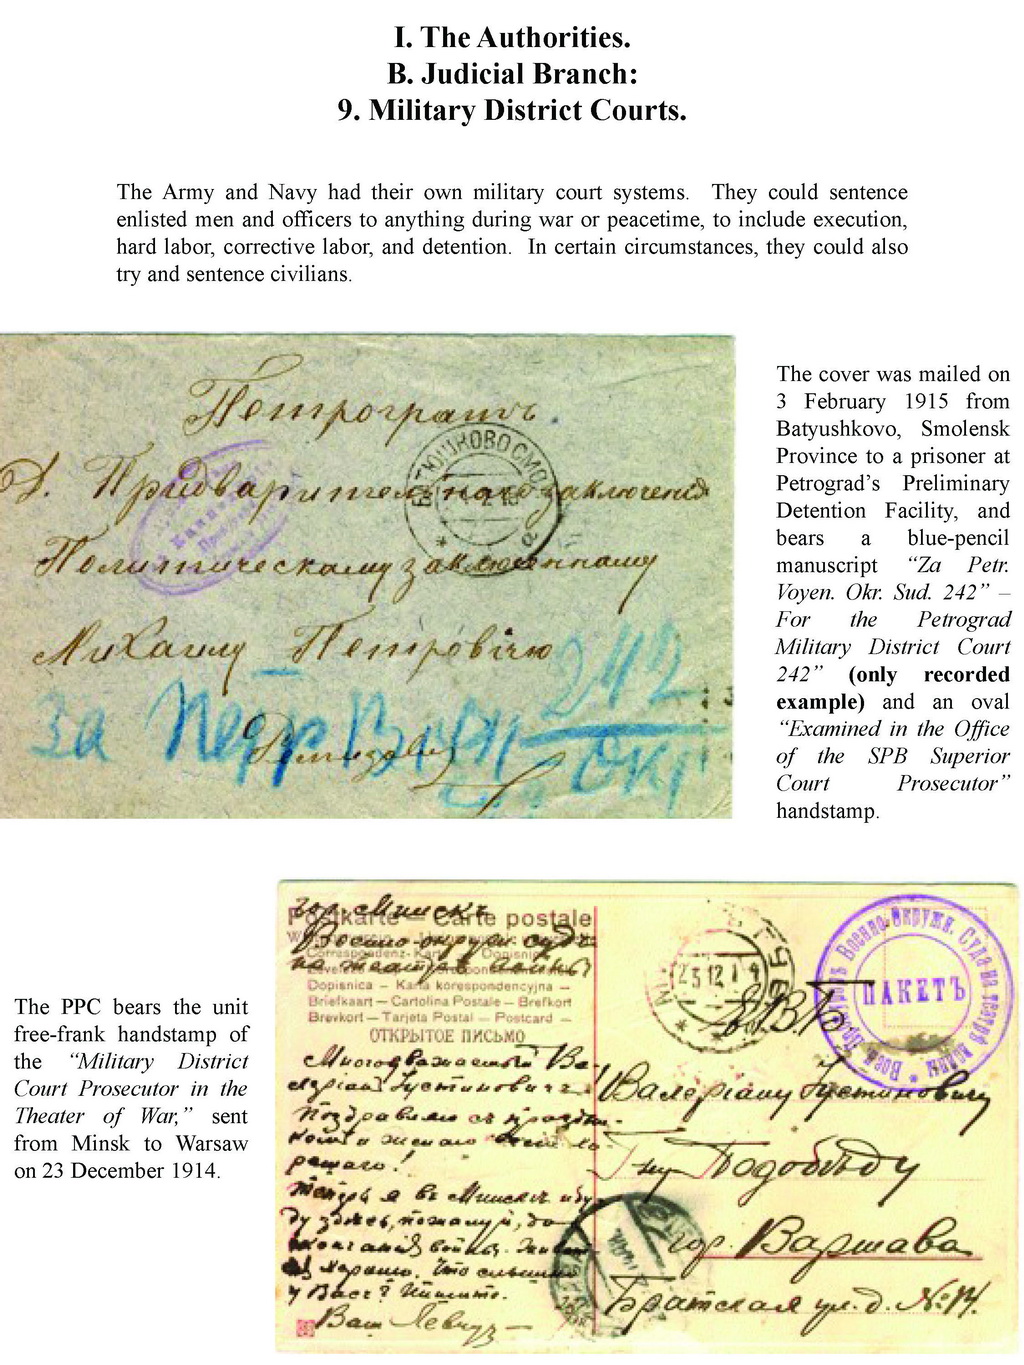 I. The Authorities.
B. Judicial Branch:
9. Military District Courts.
The Army and Navy had their own military court systems. They could sentence
enlisted men and officers to anything during war or peacetime, to include execution,
hard labor, corrective labor, and detention. In certain circumstances, they could also
try and sentence civilians.
Петроградъ.
Д. Предварительнаго заключенія
Политическому заключенному
Михаилу Петровичу
242
За Петр Воен
Окр
БАТЮШКОВО СМОЛ
The cover was mailed on
3 February 1915 from
Batyushkovo, Smolensk
Province to a prisoner at
Petrograd’s Preliminary
Detention Facility, and
bears a blue-pencil
manuscript “Za Petr.
Voyen. Okr. Sud. 242” –
For the Petrograd
Military District Court
242” (only recorded
example) and an oval
“Examined in the Office
of the SPB Superior
Court Prosecutor”
handstamp.
The PPC bears the unit
free-frank handstamp of
the “Military District
Court Prosecutor in the
Theater of War,” sent
from Minsk to Warsaw
on 23 December 1914.
Postkarte — Carte postale
Dopisnica — Karta korespondencyjna —
Briefkaart — Cartolina Postale — Brefkort
Brevkort — Tarjeta Postal — Postcard —
ОТКРЫТОЕ ПИСЬМО
гор. Минскъ
Военно-окружн судъ
на театрѣ войны
Многоуважаемый Ва-
леріанъ Густиновичъ!
Поздравляю съ праздни-
комъ и желаю всего хо-
рошаго!
Теперь я въ Минскѣ и бу-
ду здѣсь, пожалуй, до
окончанія войны.
хорошо. Что слышно
у Васъ? Пишите.
Вашъ
Военно-Окружн. Суда на театрѣ войны
ПАКЕТЪ
23 12 14
Е. В. Б.
Валеріану Густиновичу
Г-ну Подобѣду
гор. Варшава
Братская ул. д. №